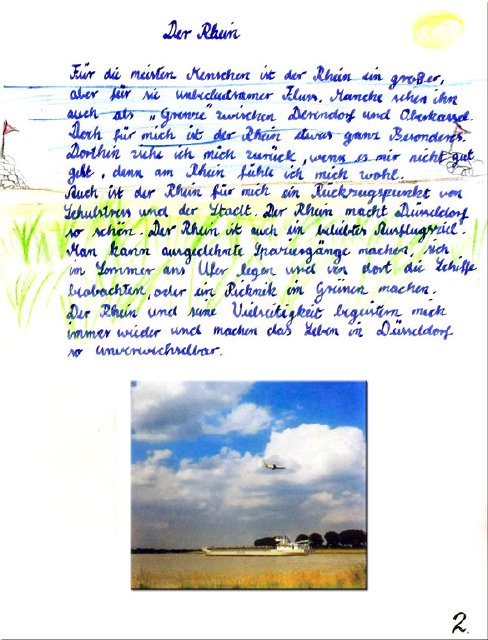 Der Rhein
Für die meisten Menschen ist der Rhein ein großer,
aber für sie unbedeutsamer Fluss. Manche sehen ihn
auch als „Grenze zwischen Derendorf und Oberkassel.
Doch für mich ist der Rhein etwas ganz Besonderes.
Dorthin ziehe ich mich zurück, wenn es mir nicht gut
geht, denn am Rhein fühle ich mich wohl.
Auch ist der Rhein für mich ein Rückzugspunkt von
Schulstress und der Stadt. Der Rhein macht Düsseldorf
so schön. Der Rhein ist auch ein beliebtes Ausflugsziel.
Man kann ausgedehnte Spaziergänge machen, sich
im Sommer ans Ufer legen und von dort die Schiffe
beobachten, oder ein Picknik im Grünen machen.
Der Rhein und seine Vielseitigkeit begeistern mich
immer wieder und machen das Leben in Düsseldorf
so unverwechselbar.
2.